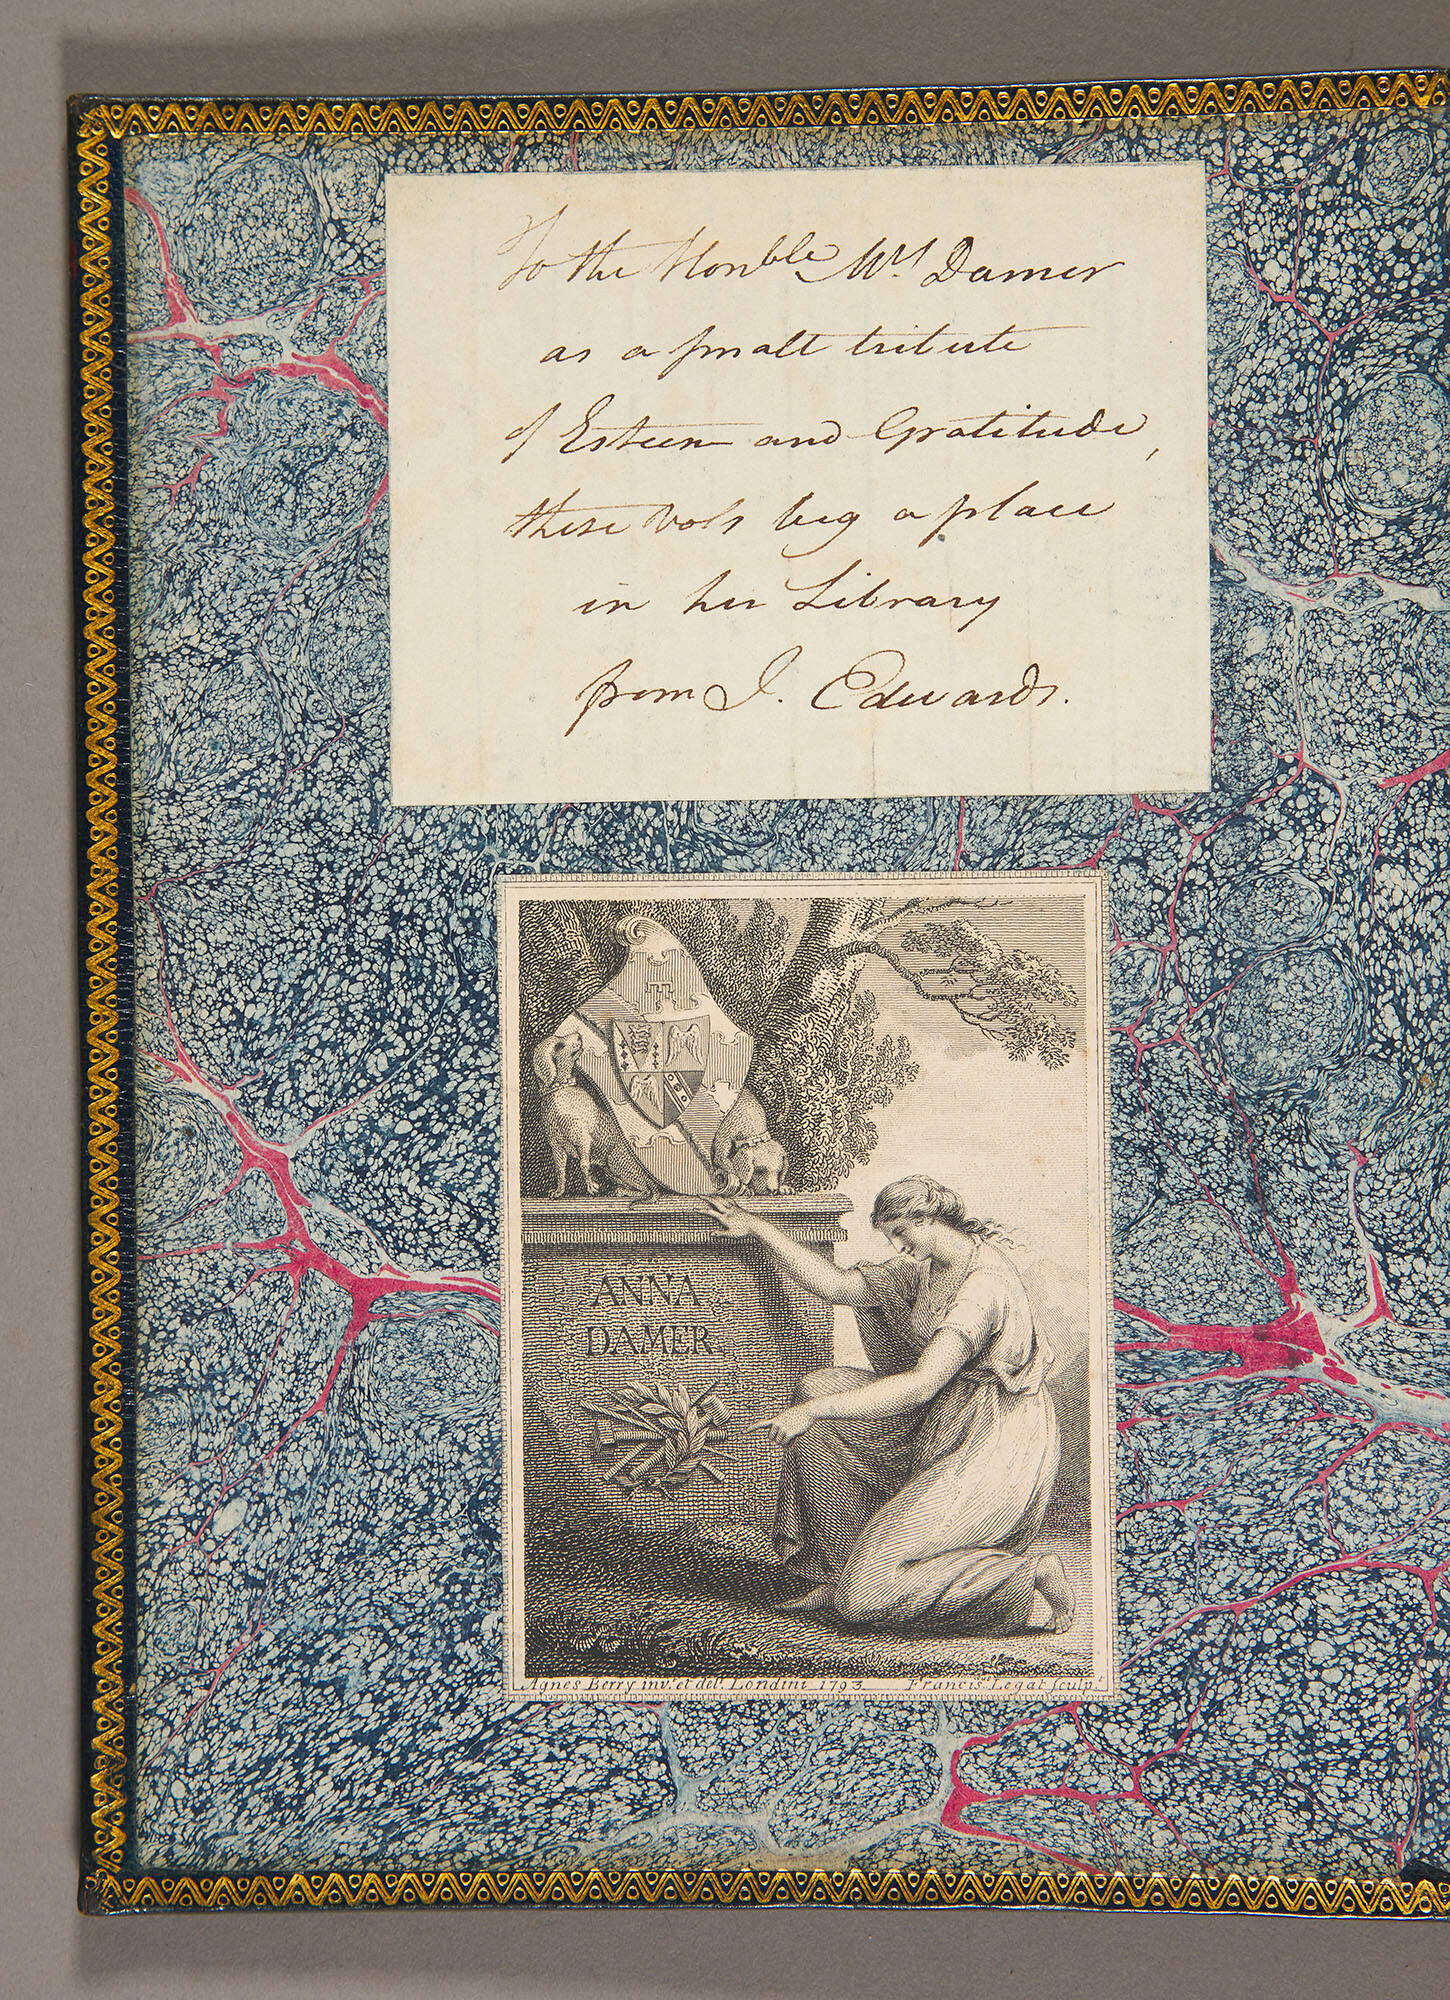 To the Honble Mrs Damer
as a small tribute
of Esteem and Gratitude,
these Vols beg a place
in her Library
from J. Edwards.
ANNA
DAMER.
Agnes Berry inv.t et del.t Londini 1793. Francis Legat sculp.t